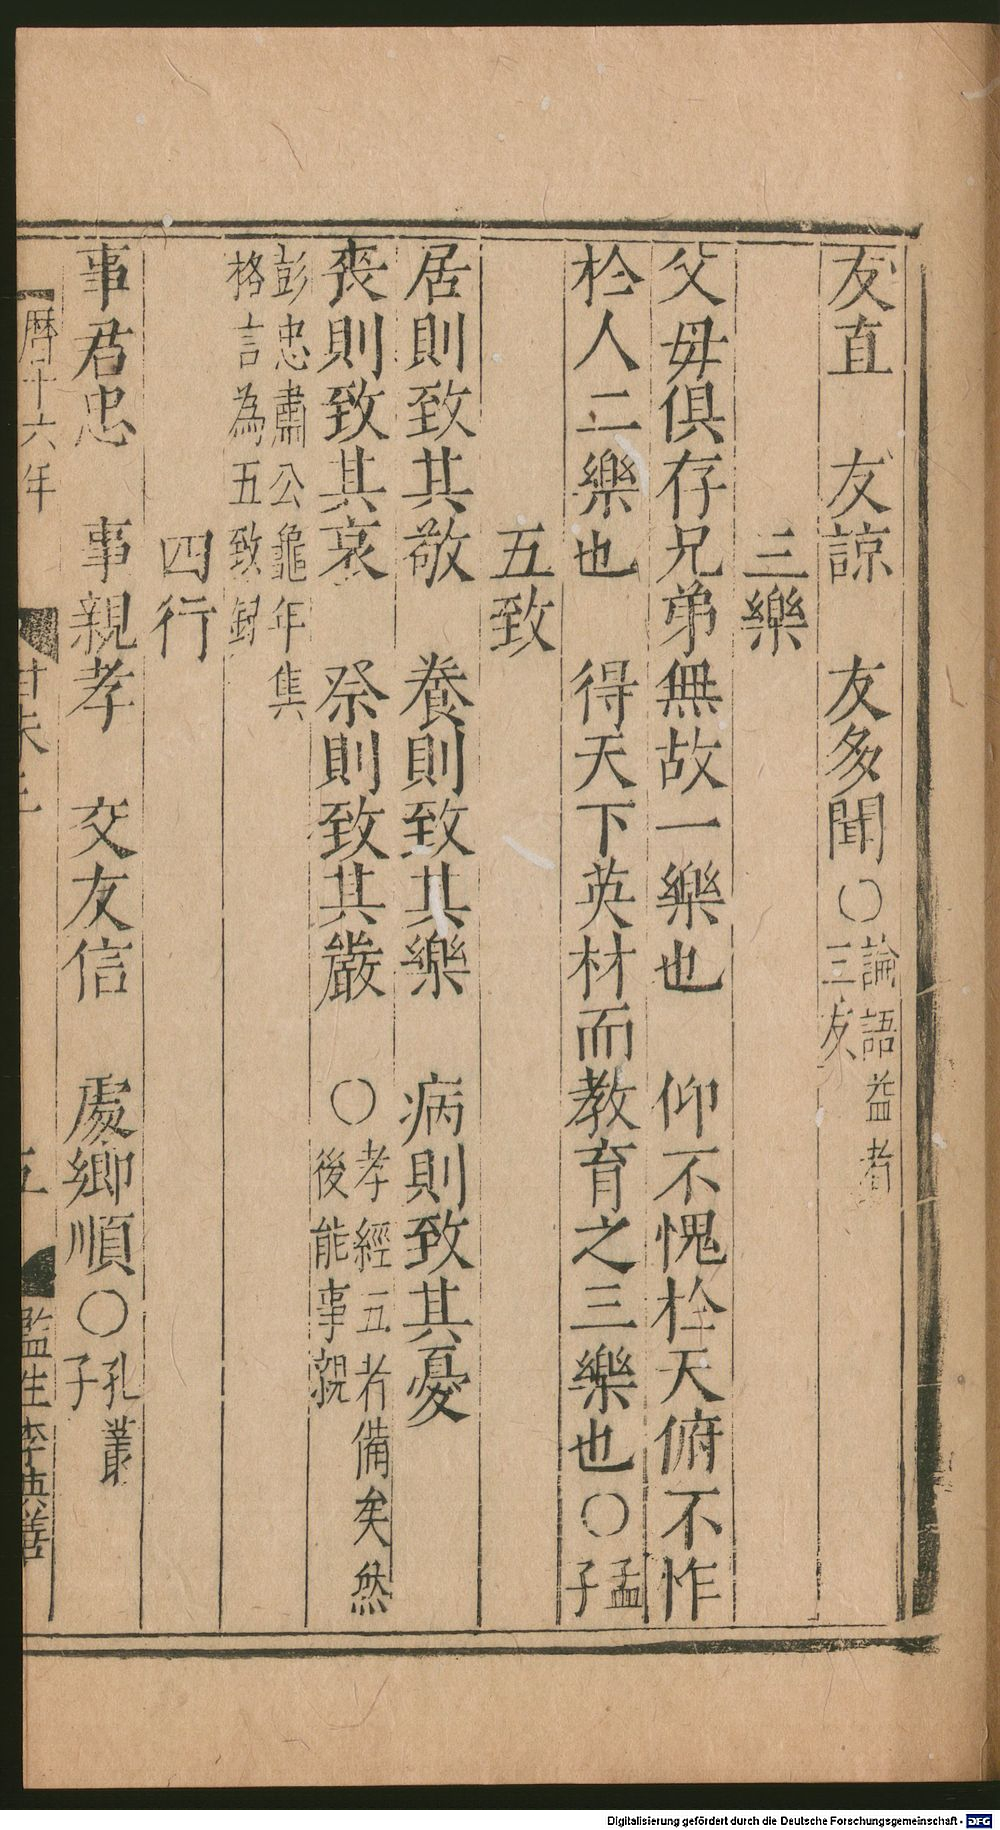 友直　友諒　友多聞〇論語益者三友
三樂
父母俱存兄弟無故一樂也　仰不愧於天俯不怍
於人二樂也　得天下英材而教育之三樂也〇孟子
五致
居則致其敬　養則致其樂　病則致其憂
喪則致其哀　祭則致其嚴　〇孝經五者備矣然後能事親
彭忠肅公龜年集
格言為五致録
四行
事君忠　事親孝　交友信　處鄉順〇孔叢子
曆十六年
五
監生李典善
Digitalisierung gefördert durch die Deutsche Forschungsgemeinschaft - DFG